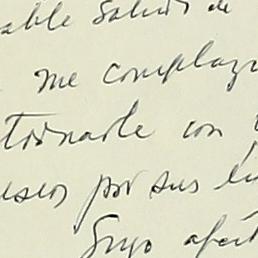 able saludo de
me complazc
tornarle con
eseos por sus
Suyo afect